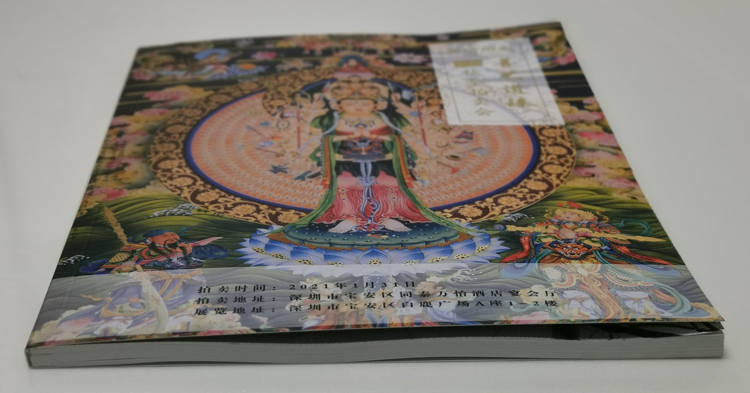 拍卖时间：2021年1月31日
拍卖地址：深圳市宝安区同泰万怡酒店宴会厅
展览地址：深圳市宝安区白鹿广场A座1-2楼